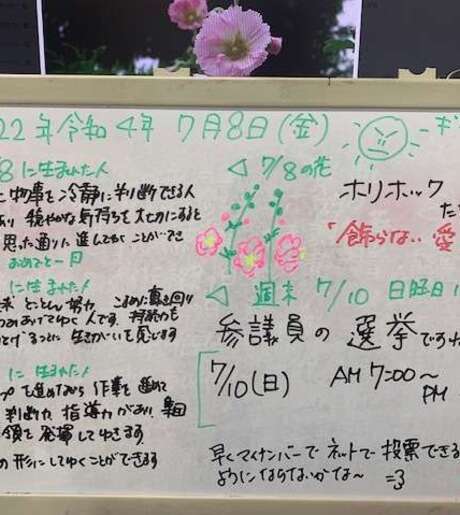 22年令和4年 7月8日(金)
8に生まれた人
物事を冷静に判断できる人
穏やかな気持ちを大切にすると
思った通りに進んでゆくことができ
おめでとー月
に生まれた人
とことん努力 こまめに真き回り
ゆく人です。持続力も
生きがいを感じます
に生まれた人
を進めながら 作業を進めて
判断力、指導力があり、集団
領を発揮してゆきます。
の形にしてゆくことができます
◁ 7/8の花
ホリホック
「飾らない愛
◁ 週末 7/10 日曜日
参議員の選挙ですね
7/10(日) AM 7:00〜
PM
早くマイナンバーでネットで投票できる
ようにならないかな〜 =3